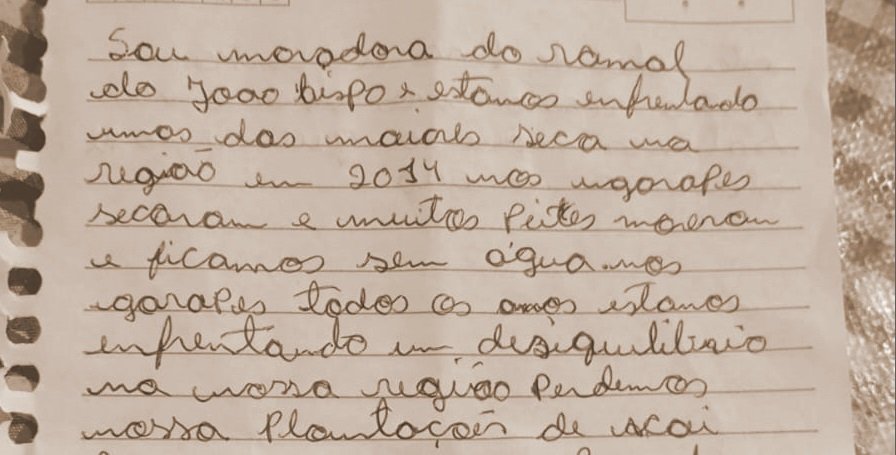 Sou moradora do ramal
do Joao bispo e estamos enfrentado
umas das maiores seca na
região em 2014 nos igarapes
secaram e muitos peixes moreram
e ficamos sem água nos
igarapes todos os anos estamos
enfrentando um desiquilibrio
na nossa região perdemos
nossa plantações de acai